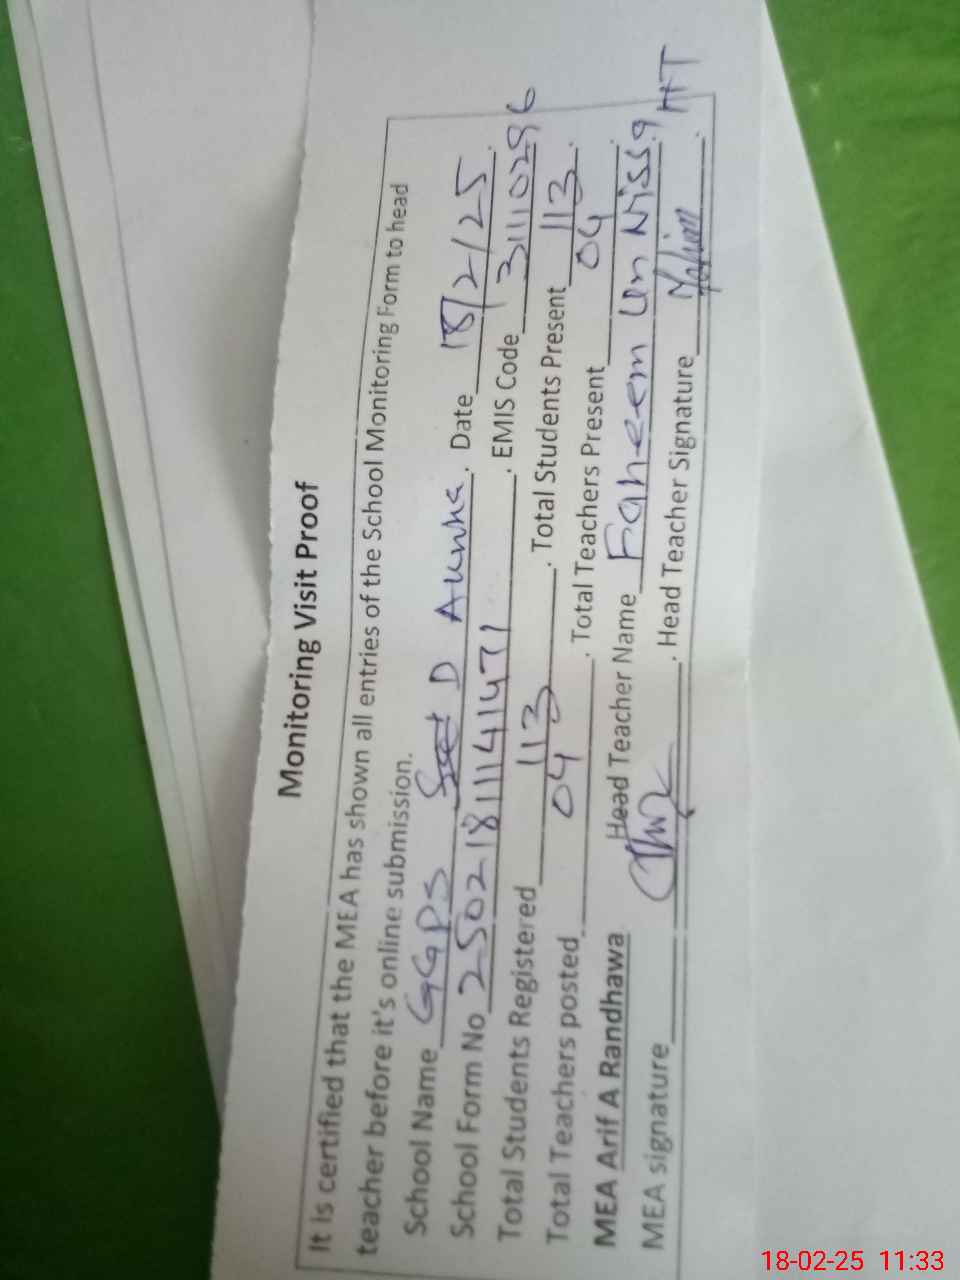 Monitoring Visit Proof
It is certified that the MEA has shown all entries of the School Monitoring Form to head
teacher before it's online submission.
School Name GGPS D . Date 18/2/25.
School Form No 25021811141471 . EMIS Code 31110296
Total Students Registered 113 . Total Students Present 113.
Total Teachers posted 04 . Total Teachers Present 04 .
MEA Arif A Randhawa Head Teacher Name Faheem Un Nissa HT
MEA signature . Head Teacher Signature .
18-02-25 11:33